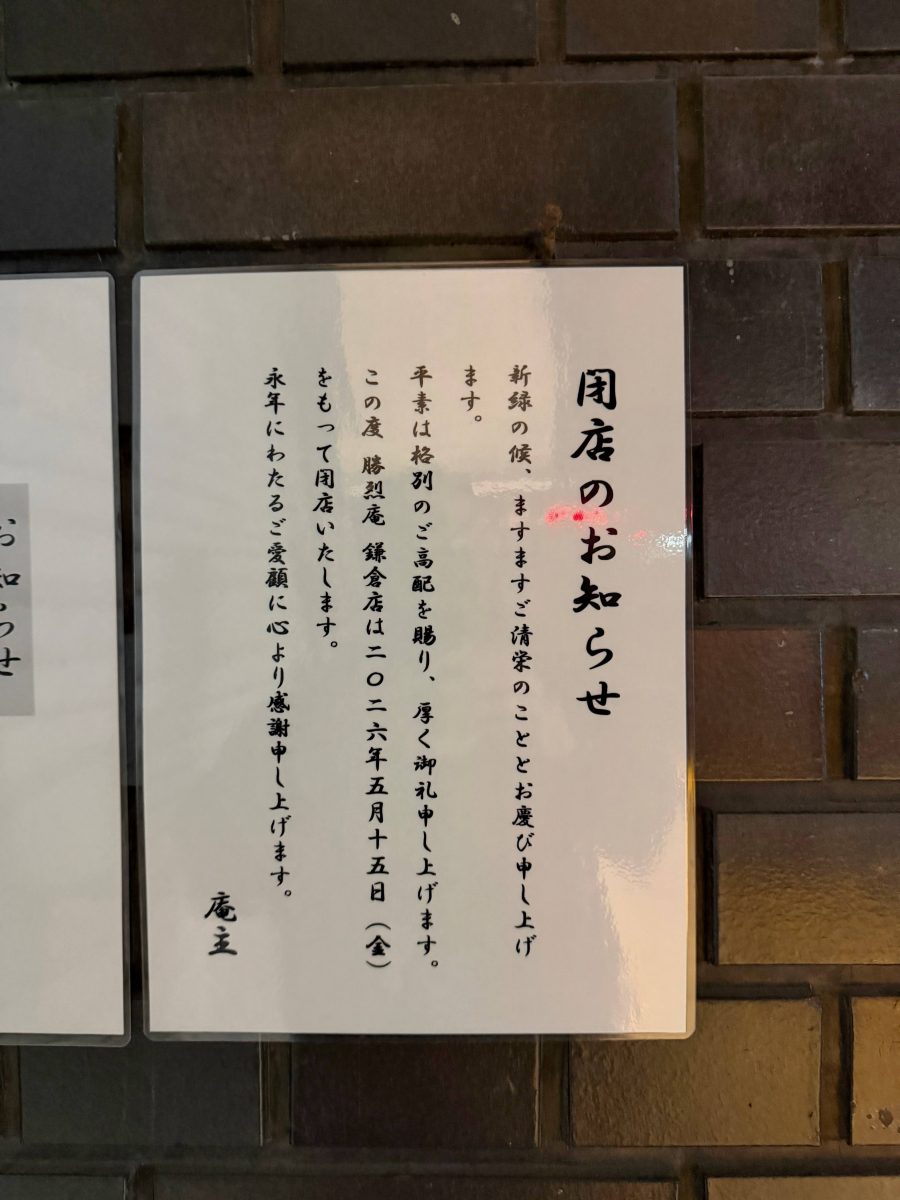 閉店のお知らせ
新緑の候、ますますご清栄のこととお慶び申し上げ
ます。
平素は格別のご高配を賜り、厚く御礼申し上げます。
この度 勝烈庵 鎌倉店は二〇二六年五月十五日(金)
をもって閉店いたします。
永年にわたるご愛顧に心より感謝申し上げます。
庵主
お知らせ